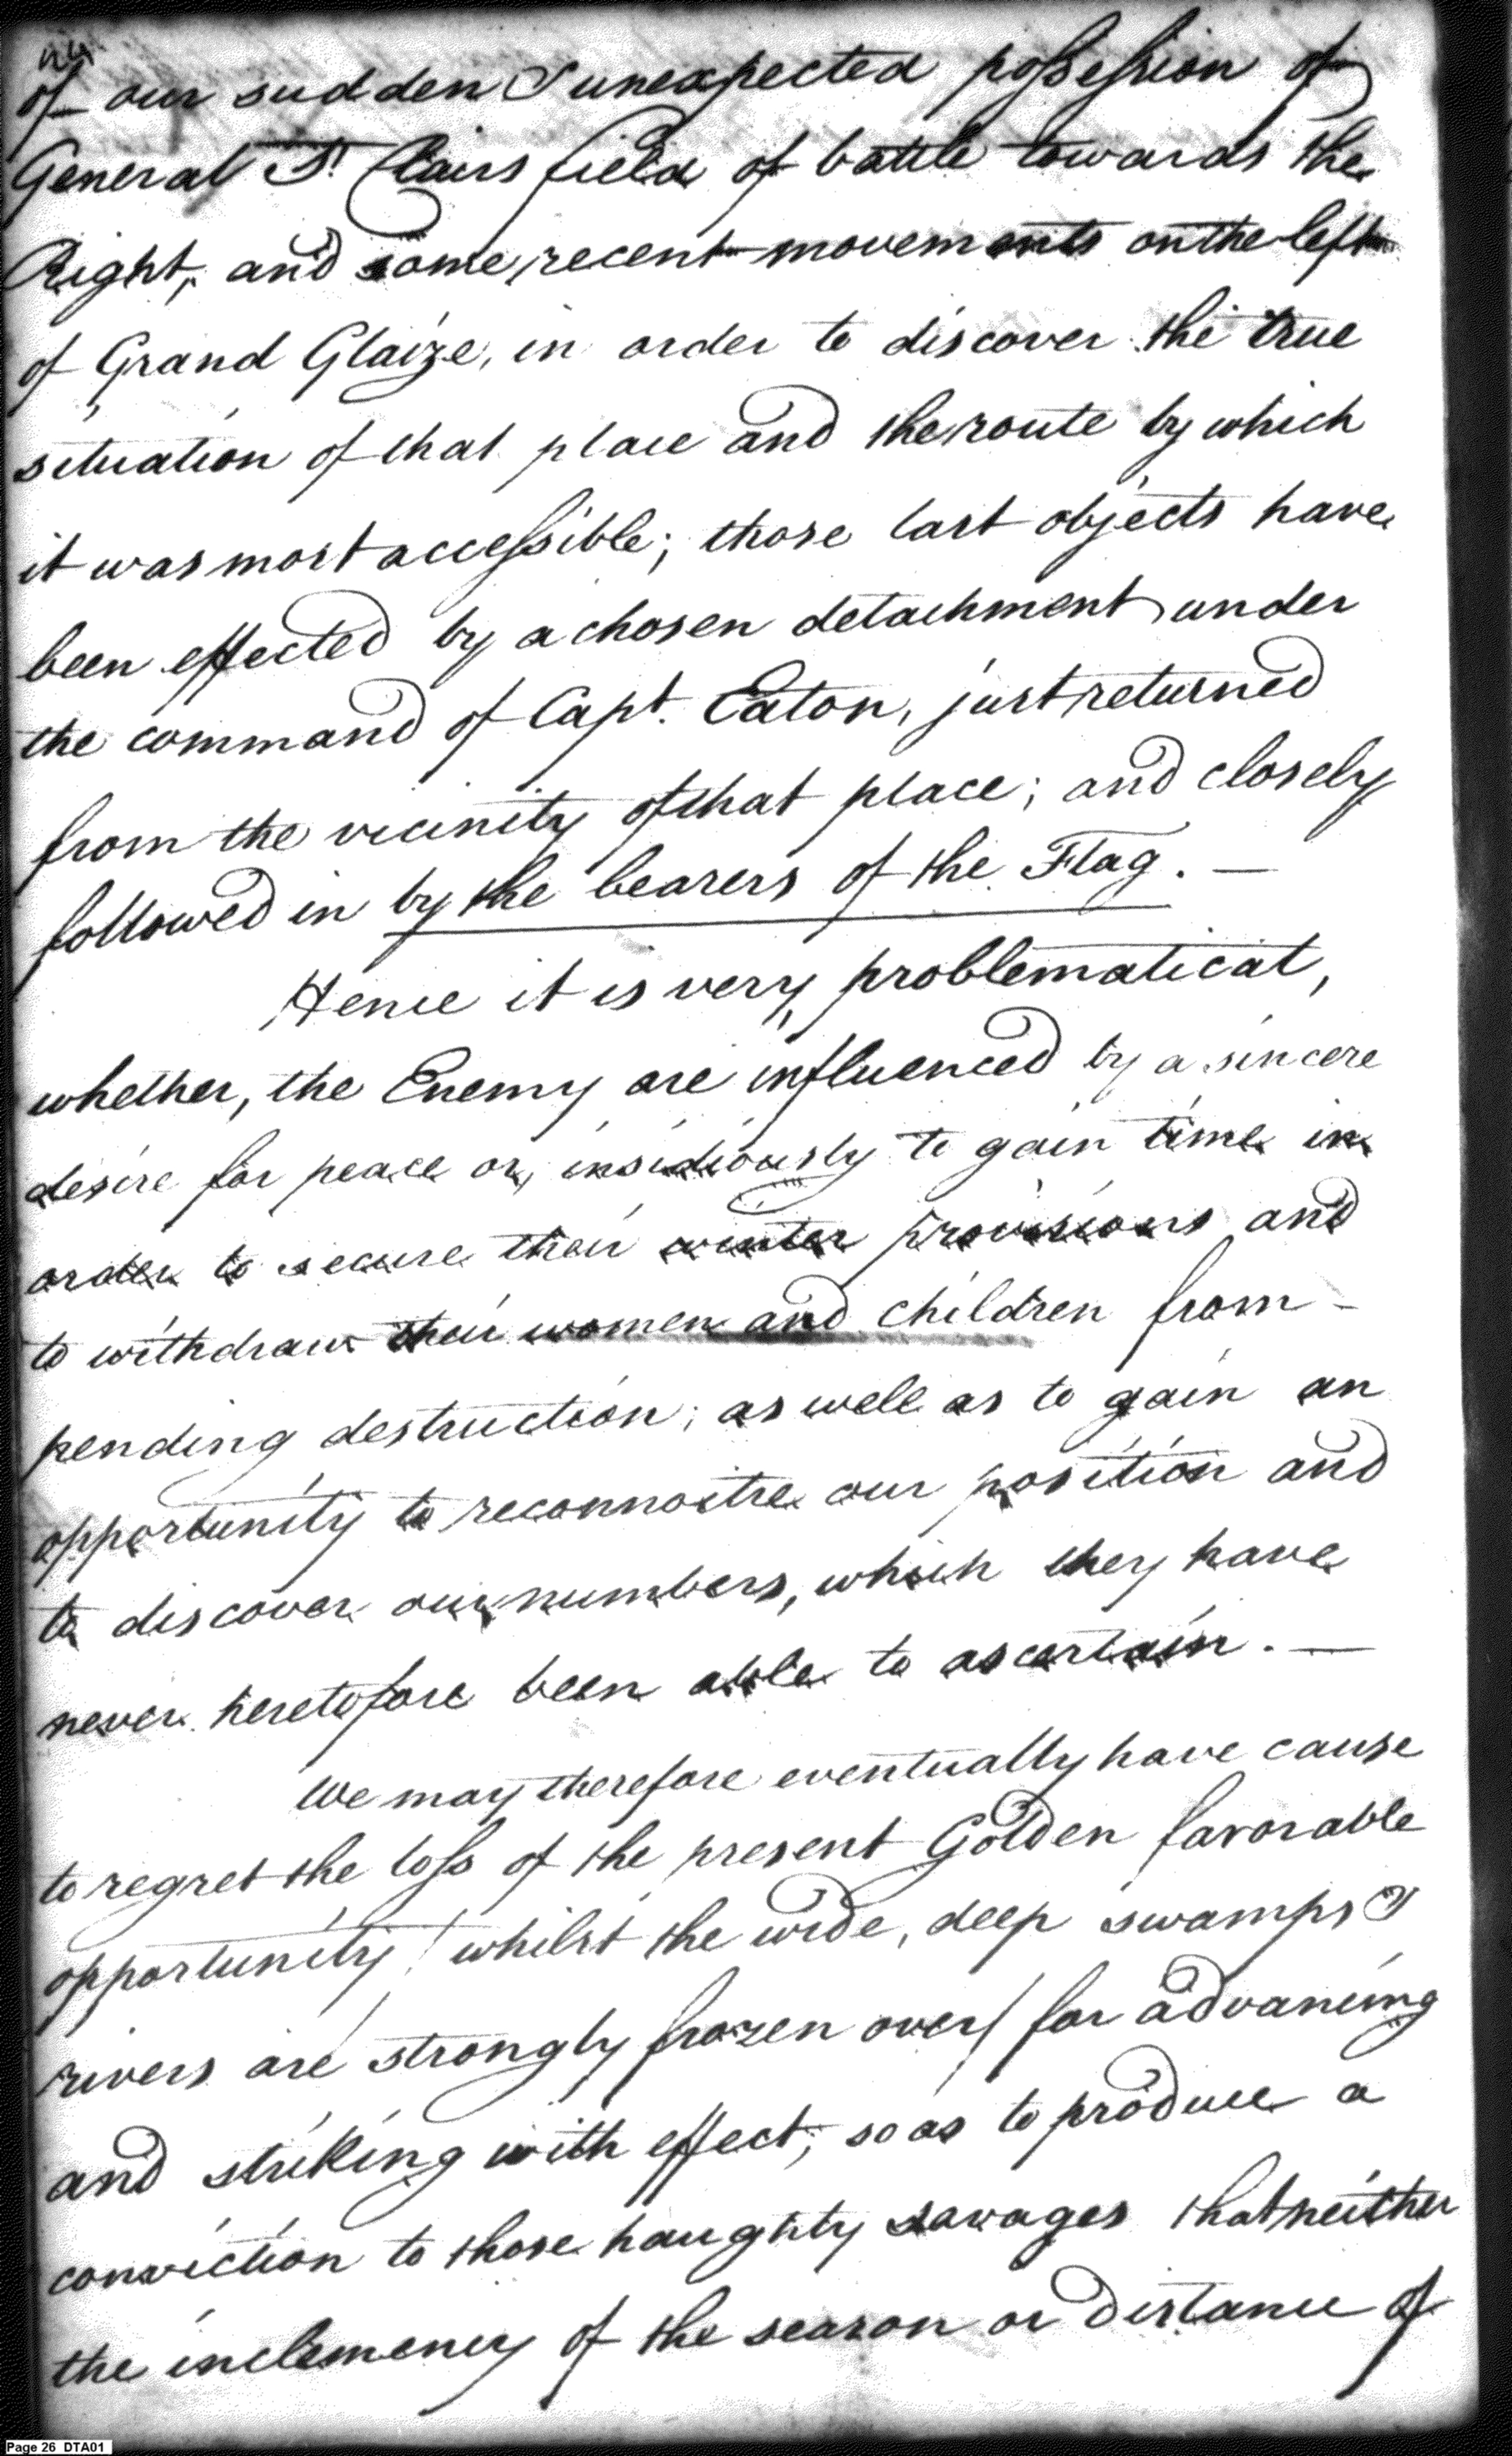 24
of our sudden & unexpected possession of
General St. Clairs field of battle towards the
Right, and some recent movements on the left
of Grand Glaize, in order to discover the true
situation of that place and the route by which
it was most accessible; those last objects have
been effected by a chosen detachment under
the command of Capt. Eaton, just returned
from the vicinity of that place; and closely
followed in by the bearers of the Flag. —
Hence it is very problematical,
whether, the Enemy are influenced by a sincere
desire for peace or, insidiously to gain time in
order to secure their winter provisions and
to withdraw their women and children from -
pending destruction; as well as to gain an
opportunity to reconnoitre our position and
to discover our numbers, which they have
never heretofore been able to ascertain. —
We may therefore eventually have cause
to regret the loss of the present Golden favorable
opportunity / whilst the wide, deep swamps &
rivers are strongly frozen over / for advancing
and striking with effect; so as to produce a
conviction to those haughty savages that neither
the inclemency of the season or distance of
Page 26 DTA01